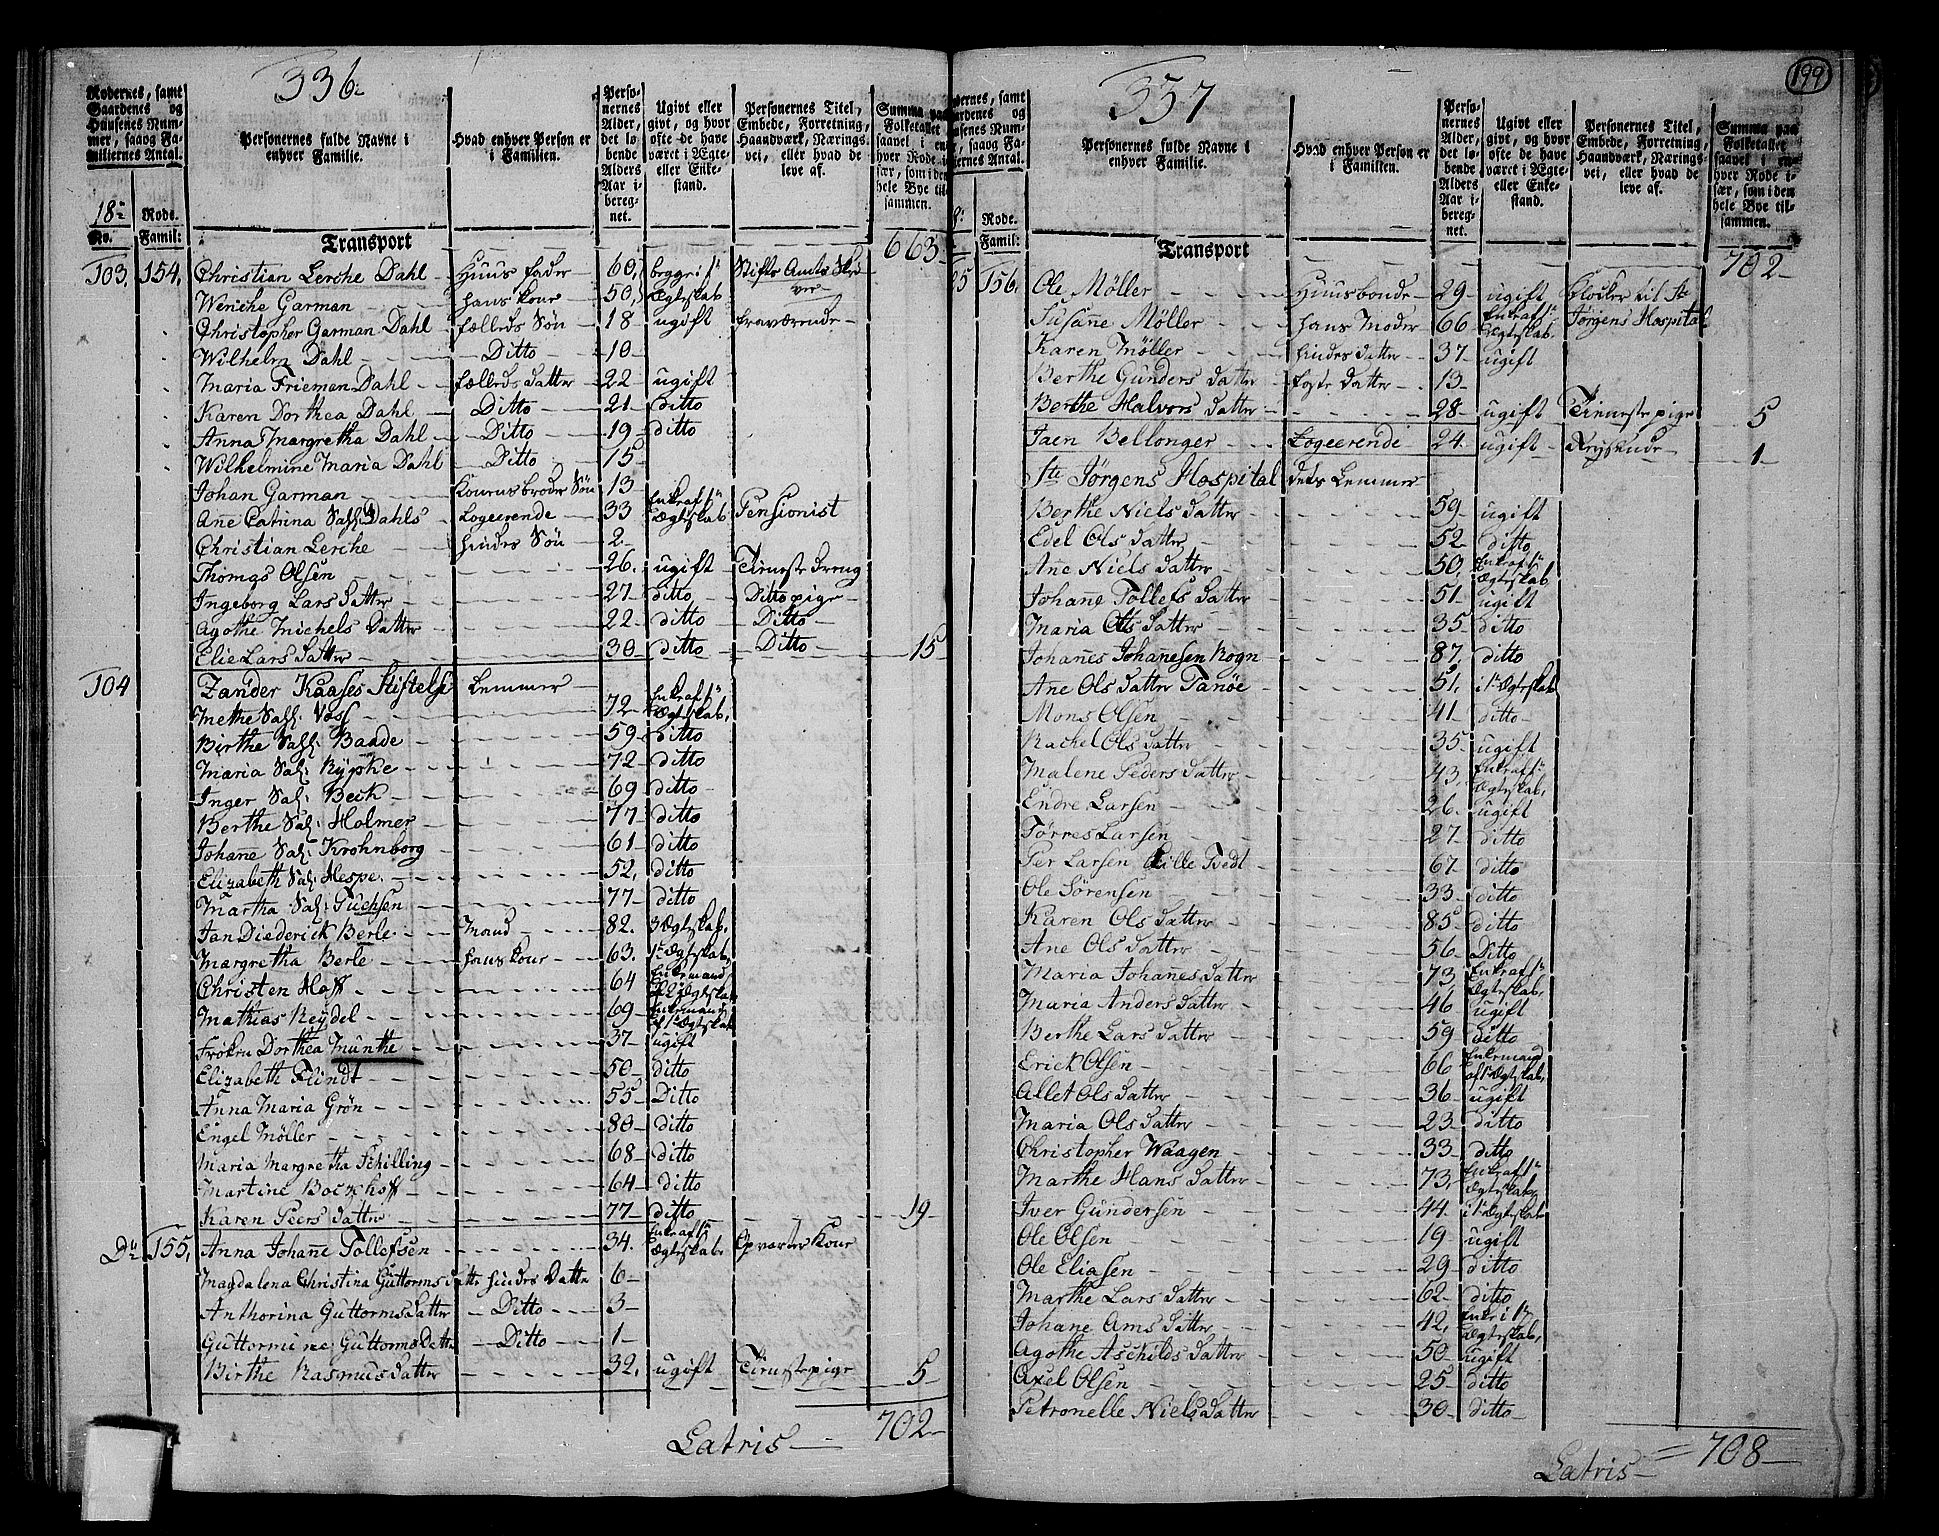 336
Rodernes, samt Gaardenes og Huusenes Nummer, saaog Familiernes Antal.
Personernes fulde Navne i enhver Familie.
Hvad enhver Person er i Familien.
Personernes Alder, det løbende Alders Aar iberegnet.
Ugivt eller givt, og hvor ofte de have været i Ægte- eller Enkestand.
Personernes Titel, Embede, Forretning, Haandværk, Næringsvei, eller hvad de leve af.
18de Rode.
No. Famil:
Transport 663
103. 154. Christian Lerche Dahl Huus fader 60, begge i 1te Stifts Amts Skriver
Wenche Garman hans kone 50, Ægteskab
Christopher Garman Dahl fælleds Søn 18 ugift fraværende
Wilhelm Dahl Ditto 10
Maria Frieman Dahl fælleds datter 22 ugift
Karen Dorthea Dahl Ditto 21 ditto
Anna Margretha Dahl Ditto 19 ditto
Wilhelmine Maria Dahl Ditto 15
Johan Garman Konens broder Søn 13
Añe Catrina Sal: Dahls Logeerende 33 Enke af 1te Ægteskab Pensionist
Christian Lerche hendes Søn 2
Thomas Olsen 26. ugift Tieneste dreng
Ingeborg Lars datter 27 ditto Ditto pige
Agothe Michels Datter 22 ditto Ditto
Elie Lars datter 30 ditto Ditto 15
104 Zander Kaases Stiftelse Lemmer
Methe Sal: Voss 72 Enke af 1te Ægteskab,
Birthe Sal: Baade 59 ditto
Maria Sal: Rÿpke 72 ditto
Inger Sal: Beck 69 ditto
Berthe Sal: Holmer 77 ditto
Johañe Sal: Krohnborg 61 ditto
Elizabeth Sal: Hespe. 52, ditto
Martha Sal: Tuchsen 77 ditto
Jan Diederick Berle Mand 82. 3 Ægteskab,
Margretha Berle hans kone 63. 1te Ægteskab,
Christen Hoff 64 Enkemand af 2 Ægteskab
Mathias Reÿdel 69 Enkemand af 1te Ægteskab
Frøken Dorthea Munthe 37 ugift
Elizabeth Flindt 50 ditto
Anna Maria Grøn 55 Ditto
Engel Møller 80 ditto
Maria Margretha Schilling 68 ditto
Martine Bockhoff 64 ditto
Karen Peers datter 77 ditto 19
Do 155, Anna Johañe Tollefsen 34. Enke af 1te Ægteskab. Opvarter Kone
Magdalena Christina Guttorms datter hendes Datter 6
Anthorina Guttorms datter Ditto 3
Guttormine Guttorms Datter Ditto 1
Birthe Rasmus datter 32. ugift Tieneste pige 5
Latris 702
199
337
Personernes fulde Navne i enhver Familie.
Hvad enhver Person er i Familien.
Personernes Alder, det løbende Alders Aar iberegnet.
Ugivt eller givt, og hvor ofte de have været i Ægte- eller Enkestand.
Personernes Titel, Embede, Forretning, Haandværk, Næringsvei, eller hvad de leve af.
Summa paa Folketallet saavel i enhver Rode især, som i den hele Bye tilsammen.
Rode.
Famil:
Transport 702
156. Ole Møller Huusbonde 29 ugift Clocker til Ste
Susañe Møller hans Moder 66 Enke af 1te Ægteskab Jørgens Hospital
Karen Møller hendes datter 37 ugift
Berthe Gunders datter foster datter 13
Berthe Halvors datter 28 ugift Tieneste pige 5
Jaen Bellonger Logeerende 24 ugift Reysende 1
Ste Jørgens Hospital dets Lemmer
Berthe Niels datter 59 ugift
Edel Ols datter 52 ditto
Añe Niels datter 50, Enke af 1te Ægteskab
Johañe Tollefs datter 51 ugift
Maria Ols datter 35 ditto
Johañes Johañesen Rogn 87, ditto
Añe Ols datter Tanøe 51, i 1te Ægteskab
Mons Olsen 41 ditto
Rachel Ols datter 35 ugift
Malene Peders datter 43 Enke af 1te Ægteskab,
Endre Larsen 26 ugift
Tørres Larsen 27 ditto
Per Larsen Lille Tvedt 67 ditto
Ole Sørensen 33 ditto
Karen Ols datter 85 ditto
Ane Ols datter 56 Ditto
Maria Johanes datter 73, Enke af 1te Ægteskab,
Maria Anders datter 46 ugift
Berthe Lars datter 59 ditto
Erick Olsen 66 Enkemand af 1te Ægteskab,
Allet Ols datter 36 ugift
Maria Ols datter 23 ditto
Christopher Waagen 33 ditto
Marthe Hans datter 73, Enke af 1te Ægteskab,
Iver Gundersen 44 i 1te Ægteskab
Ole Olsen 19 ugift
Ole Eliasen 29 ditto
Marthe Lars datter 62 ditto
Johane Ams datter 42, Enke i 1te Ægteskab,
Agothe Aschilds datter 50 ugift
Axel Olsen 25 ditto
Petronelle Niels datter 30 ditto
Latris 708